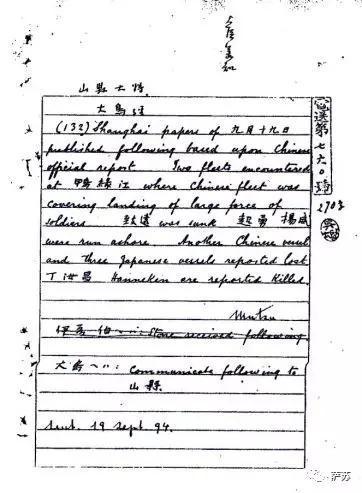 山縣大將
大鳥
(132) Shanghai papers of 九月十九日
published following based upon Chinese
official report Two fleets encountered
at 鴨緑江 where Chinese fleet was
covering landing of large force of
soldiers 致遠 was sunk 超勇 揚威
were run ashore. Another Chinese vessel
and three Japanese vessels reported lost
丁汝昌 Hanneken are reported killed.
Mutsu
received following.
大鳥 communicate following to
山縣.
Sent. 19 Sept 94.
電送第七六〇號
270
萨苏